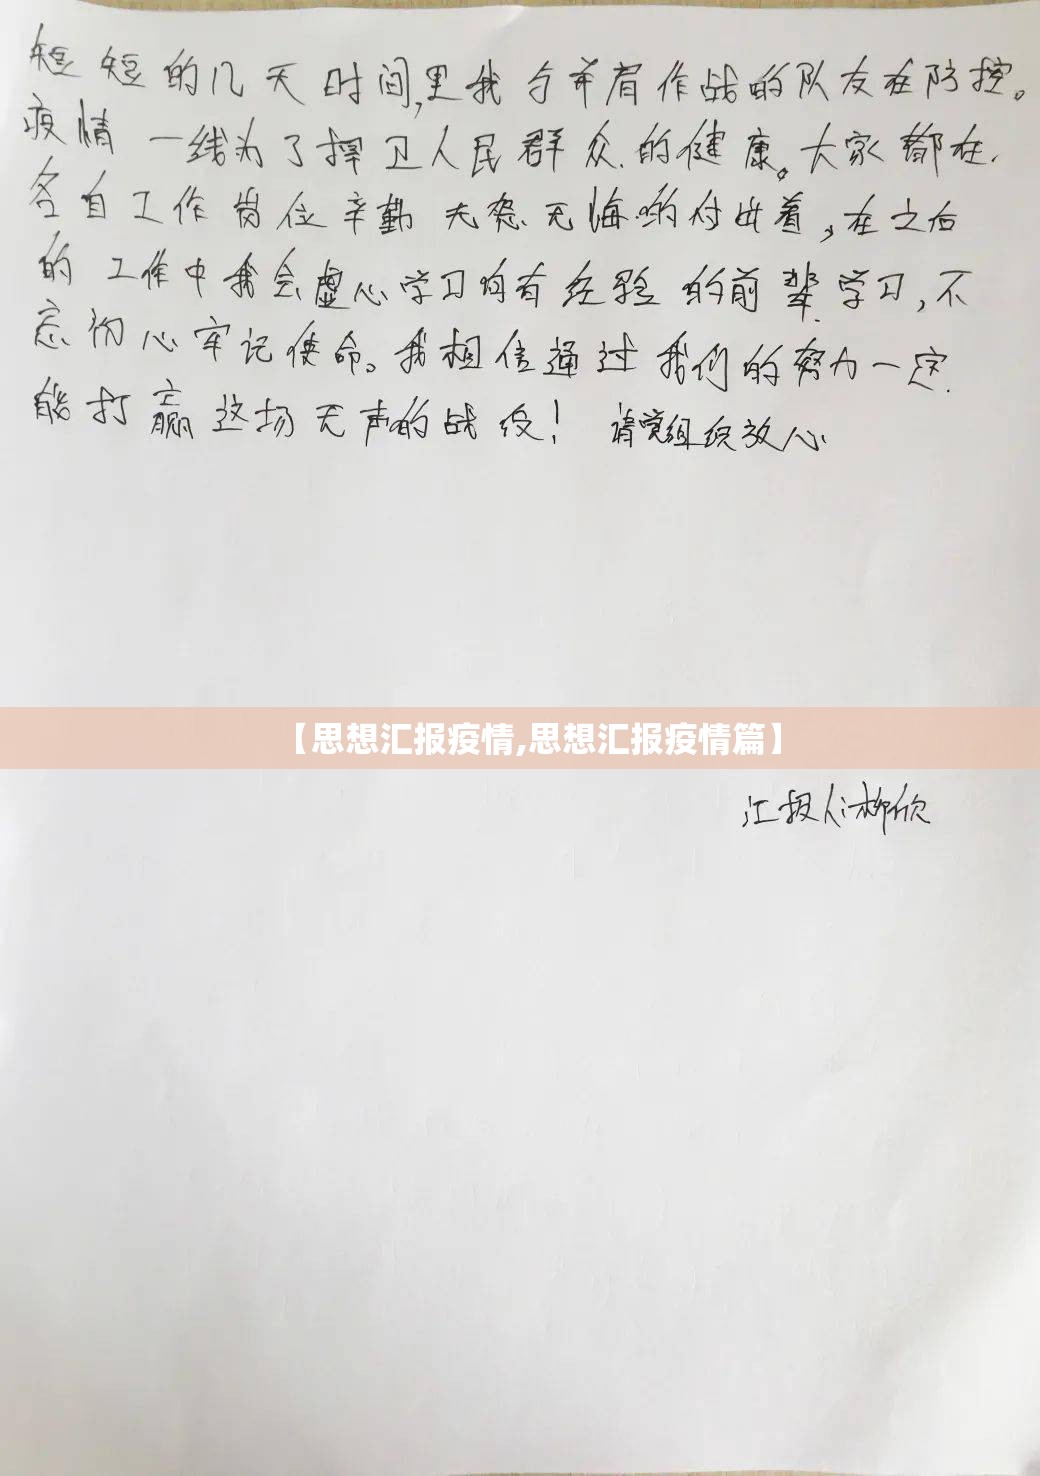 短短的几天时间,里我与并肩作战的队友在防控。
疫情一线为了捍卫人民群众的健康。大家都在
各自工作岗位辛勤无怨无悔的付出着,在之后
的工作中我会虚心学习向有经验的前辈学习,不
忘初心牢记使命。我相信通过我们的努力一定
能打赢这场无声的战役! 请党组织放心
【思想汇报疫情,思想汇报疫情篇】
汇报人:柳欣